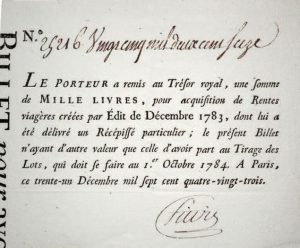 N.º 25216 Vingt cinq mil deux cent seize
LE PORTEUR a remis au Trésor royal, une somme
de MILLE LIVRES, pour acquisition de Rentes
viagères créées par Édit de Décembre 1783, dont lui a
été délivré un Récépissé particulier; le présent Billet
n'ayant d'autre valeur que celle d'avoir part au Tirage des
Lots, qui doit se faire au 1.er Octobre 1784. A Paris,
ce trente-un Décembre mil sept cent quatre-vingt-trois.
BILLET pour